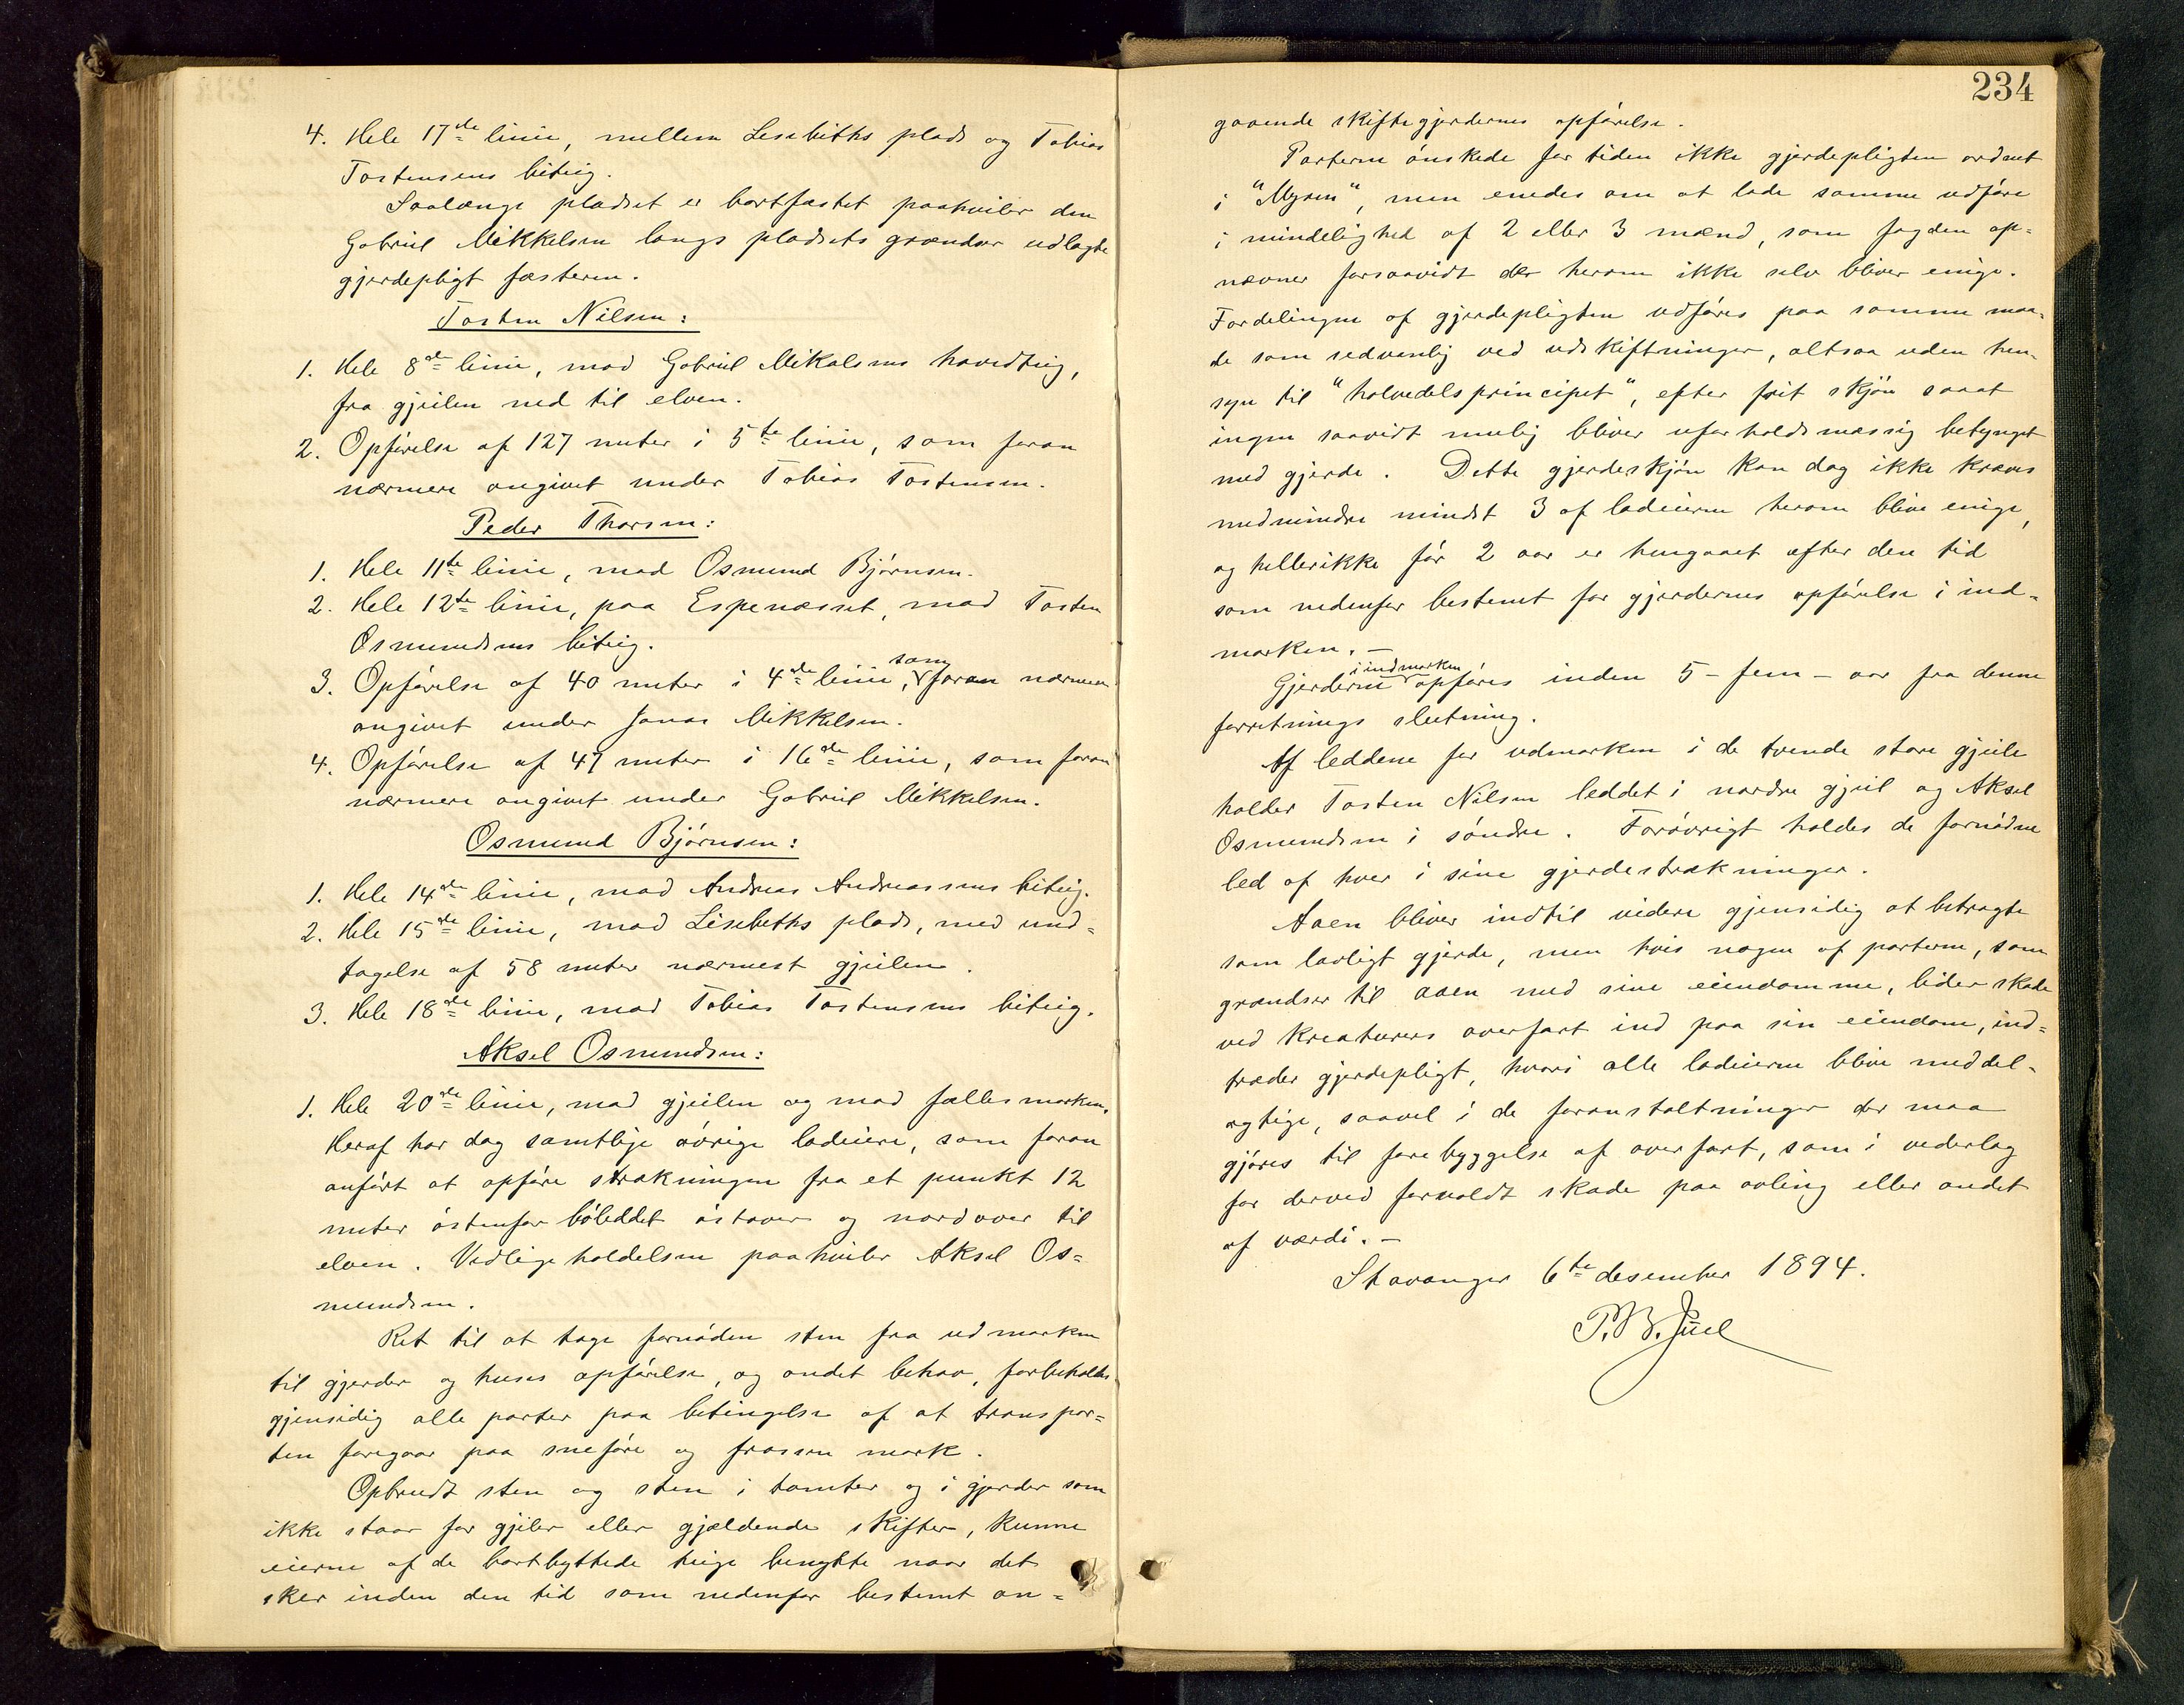 4. Hele 17de linie, mellem Lisebeths plads og Tobias
Tostensens biteig.
Saalænge pladset er bortfæstet paahviler den
Gabriel Mikkelsen langs pladsets grændser udlagte
gjerdepligt fæsteren.
Tosten Nilsen:
1. Hele 8de linie, mod Gabriel Mikalsens hovedteig,
fra gjeilen ned til elven.
2. Opførelse af 127 meter i 5te linie, som foran
nærmere angivet under Tobias Tostensen.
Peder Thorsen:
1. Hele 11te linie, mod Osmund Bjørnsen.
2. Hele 12te linie, paa Espenæsset, mod Tosten
Osmundsens biteig.
som
3. Opførelse af 40 meter i 4de linie, foran nærmere
angivet under Jonas Mikkelsen.
4. Opførelse af 47 meter i 16de linie, som foran
nærmere angivet under Gabriel Mikkelsen.
Osmund Bjørnsen:
1. Hele 14de linie, mod Andreas Andreassens biteig.
2. Hele 15de linie, mod Lisebeths plads, med und=
tagelse af 58 meter nærmest gjeilen.
3. Hele 18de linie, mod Tobias Tostensens biteig.
Aksel Osmundsen:
1. Hele 20de linie, mod gjeilen og mod fællesmarken.
Heraf har dog samtlige øvrige lodeiere, som foran
anført at opføre strækningen fra et punkt 12
meter østenfor bøleddet østover og nordover til
elven. Vedligeholdelsen paahviler Aksel Os=
mundsen.
Ret til at tage fornøden sten fra udmarken
til gjerder og huses opførelse, og andet behov, forbeholdes
gjensidig alle parter paa betingelse af at transpor=
ten foregaar paa sneføre og frossen mark.
Opbrudt sten og sten i tomter og i gjerder som
ikke staar for gjeiler eller gjældende skifter, kunne
eierne af de bortbyttede teige benytte naar det
sker inden den tid som nedenfor bestemt an=
234
gaaende skiftegjerdernes opførelse.
Parterne ønskede for tiden ikke gjerdepligten ordnet
i "Myren", men enedes om at lade samme udføre
i mindelighed af 2 eller 3 mænd, som fogden op=
nævner forsaavidt de herom ikke selv bliver enige.
Fordelingen af gjerdepligten udføres paa samme maa=
de som sedvanlig ved udskiftninger, altsaa uden hen=
syn til "halvedelsprincipet", efter frit skjøn saaat
ingen saavidt mulig bliver uforholdsmæssig betynget
med gjerde. Dette gjerdeskjøn kan dog ikke kræves
medmindre mindst 3 af lodeierne herom blive enige,
og hellerikke før 2 aar er hengaaet efter den tid
som nedenfor bestemt for gjerdernes opførelse i ind=
marken. –
i indmarken
Gjerderne opføres inden 5 – fem – aar fra denne
forretnings slutning.
Af leddene for udmarken i de tvende store gjeile
holder Tosten Nilsen leddet i nordre gjeil og Aksel
Osmundsen i søndre. Forøvrigt holdes de fornødne
led af hver i sine gjerdestrækninger.
Aaen bliver indtil videre gjensidig at betragte
som lovligt gjerde, men hvis nogen af parterne, som
grændser til aaen med sine eiendomme, lider skade
ved kreaturers overfart ind paa sin eiendom, ind=
træder gjerdepligt, hvori alle lodeierne blive meddel=
agtige, saavel i de foranstaltninger der maa
gjøres til forebyggelse af overfart, som i vederlag
for derved forvoldt skade paa avling eller andet
af værdi. –
Stavanger 6te desember 1894.
P. B. Juel